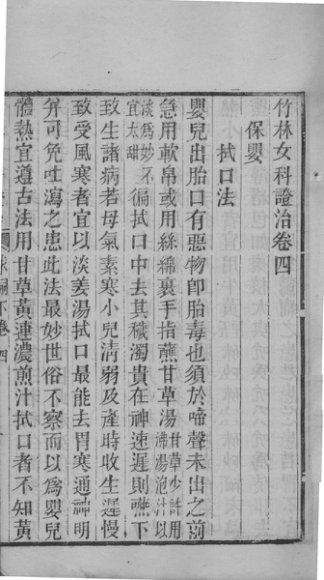 竹林女科證治卷四
保嬰
拭口法
嬰兒出胎口有惡物卽胎毒也須於啼聲未出之前
急用軟帛或用絲綿裹手指蘸甘草湯甘草少許用沸湯泡汁以
淡爲妙不宜太甜徧拭口中去其穢濁貴在神速遲則嚥下
致生諸病若母氣素寒小兒淸弱及產時收生遲慢
致受風寒者宜以淡姜湯拭口最能去胃寒通神明
幷可免吐瀉之患此法最妙世俗不察而以爲嬰兒
體熱宜遵古法用甘草黃連濃煎汁拭口者不知黃